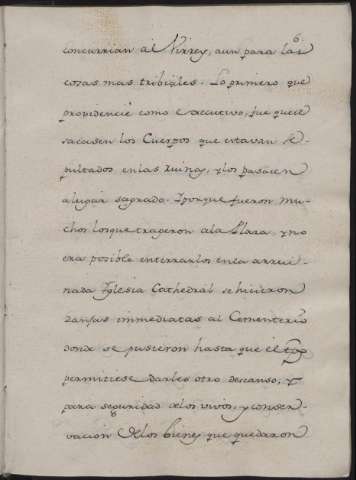 6
concurrian al Virrey, aun para las
cosas mas tribiales. Lo primero que
providencié como executivo, fue que se
sacasen los Cuerpos que estavan se-
pultados en las ruinas, y los pasasen
a lugar sagrado. Y porque fueron mu-
chos los que trageron a la Plaza, y no
era posible enterrarlos en la arrui-
nada Iglesia Cathedral se hicieron
Zanjas immediatas al Cementerio
donde se pusieron hasta que el tpo
permitiese darles otro descanso; Y
para seguridad de los vivos, y conser-
vacion de los bienes que quedaron